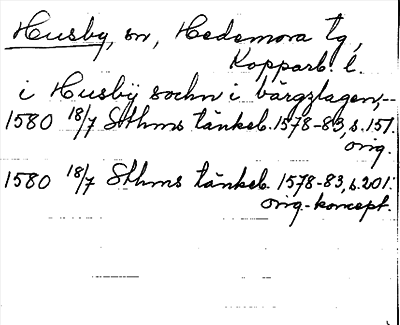 Husby, sn, Hedemora tg,
Kopparb. l.
i Husby sochn i bärgzlagen,--
1580 18/7 Sthms tänkeb. 1578-83, s. 151.
orig.
1580 18/7 Sthms tänkeb. 1578-83, s. 201.
orig.-koncept.